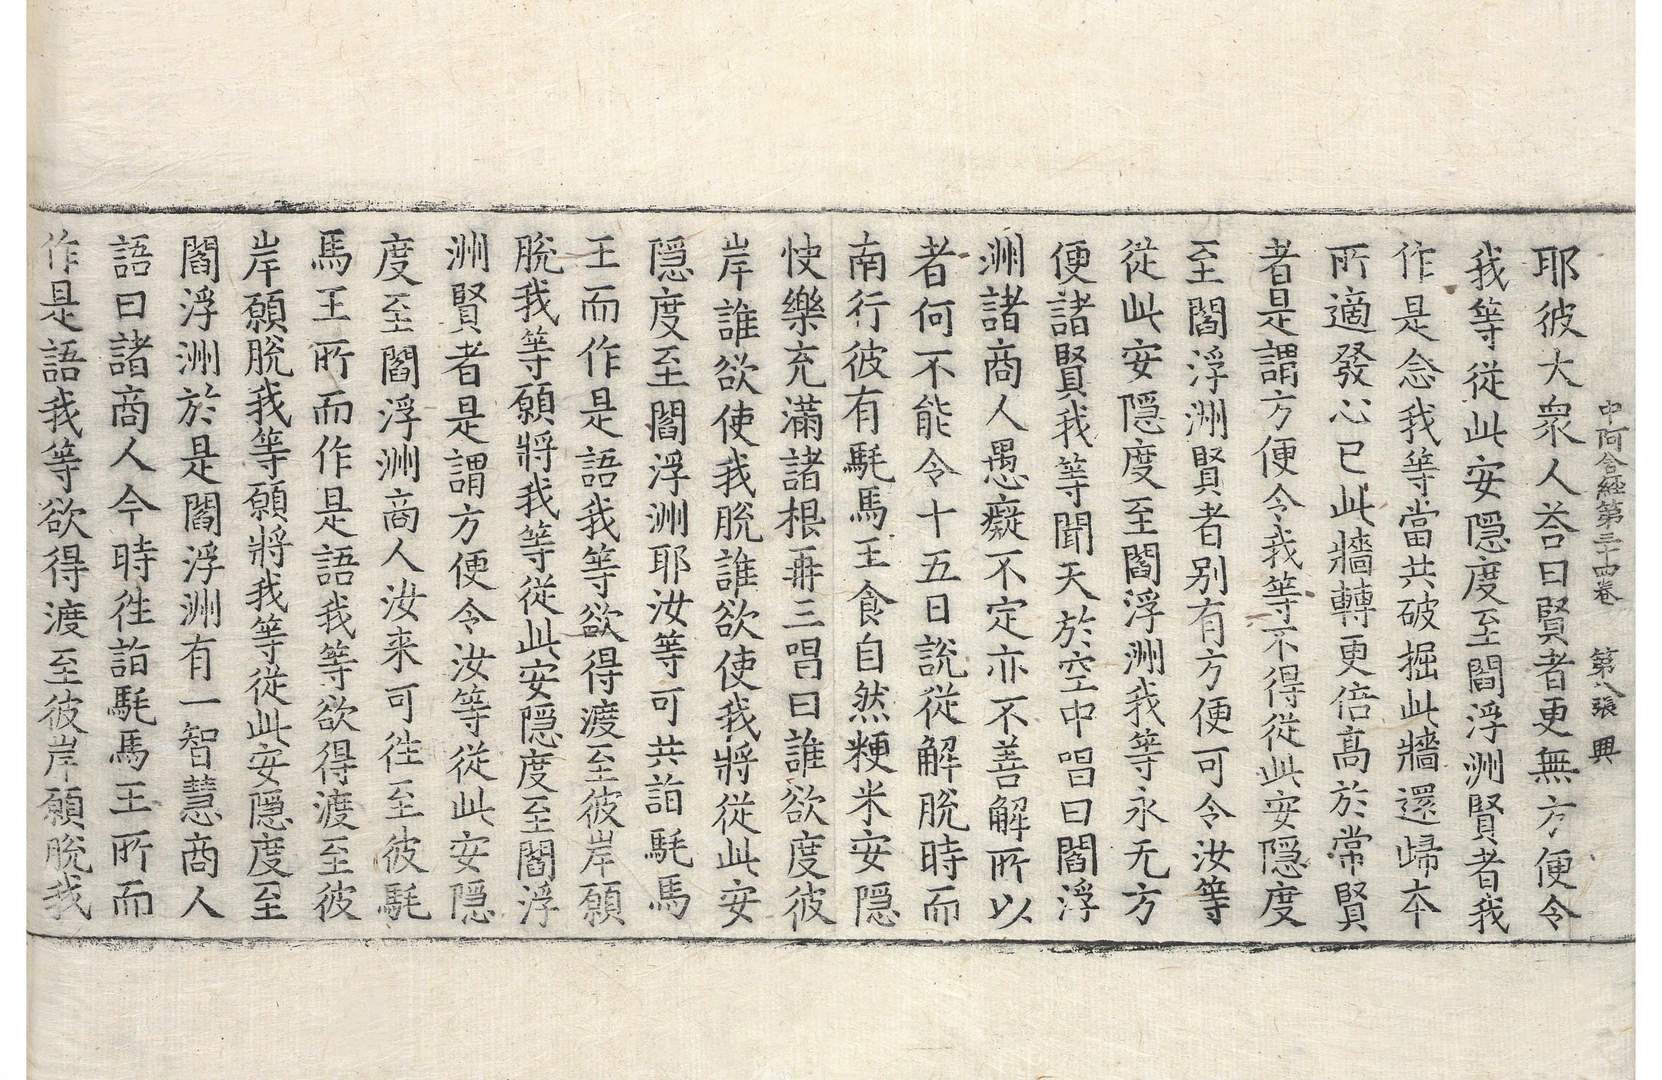 中阿含經第三十四卷 第八張 興
耶彼大衆人荅曰賢者更無方便令
我等從此安隱度至閻浮洲賢者我
作是念我等當共破掘此牆還歸本
所適發心已此牆轉更倍高於常賢
者是謂方便令我等不得從此安隱度
至閻浮洲賢者別有方便可令汝等
從此安隱度至閻浮洲我等永无方
便諸賢我等聞天於空中唱曰閻浮
洲諸商人愚癡不定亦不善解所以
者何不能令十五日說從解脫時而
南行彼有駹馬王食自然粳米安隱
快樂充滿諸根再三唱曰誰欲度彼
岸誰欲使我脫誰欲使我將從此安
隱度至閻浮洲耶汝等可共詣駹馬
王而作是語我等欲得渡至彼岸願
脫我等願將我等從此安隱度至閻浮
洲賢者是謂方便令汝等從此安隱
度至閻浮洲商人汝来可徃至彼駹
馬王所而作是語我等欲得渡至彼
岸願脫我等願將我等從此安隱度至
閻浮洲於是閻浮洲有一智慧商人
語曰諸商人今時徃詣駹馬王所而
作是語我等欲得渡至彼岸願脫我